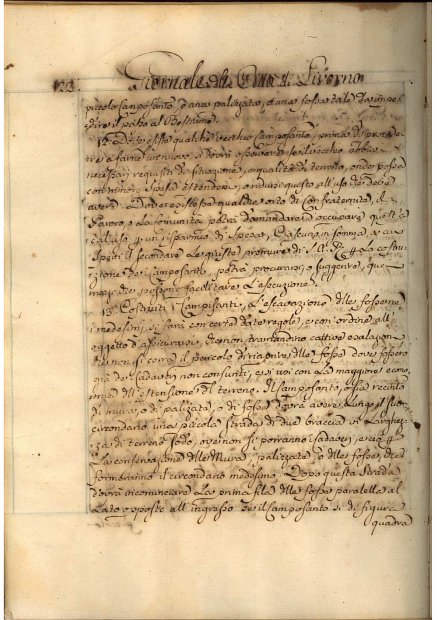 122 Giornale di Città di Livorno
piccolo Camposanto d'una palizata, o una fossa tale da impe
dire il passo al Bestiame.
12. Dove esista qualche vecchio Camposanto, prima di procede
re a farne un nuovo si dovrà osservare se il vecchio abbia i
necessarj requisiti di situazione, e qualità di terreno, onde possa
con minore spesa estendersi, o ridursi questo all'uso dei
Dove esista poi qualche orto di Confraternita, il
Paroco, o la Comunità potrà domandare di occupare questi a
tal uso di spese, e ciascuna somma, a cui
spetti il secondare le giuste premure di S. A. R. la costru
zione dei Camposanti, potrà procurarsi, o suggerire, que
mezzi che possono facilitare l'esecuzione.
13. Costruiti i Campisanti, l'escavazione delle fosse ne
i medesimi si farà con certe date regole, e con ordine all'
oggetto d'assicurarsi, che non tramandino cattive esalazion
e non si corra il pericolo di riaprire delle fosse dove fossero
già dei Cadaveri non consunti, e si usi con la maggiore econo
mia dell'estensione del terreno. Il Camposanto, o sia recinto
di mura, o di palizata, o di fosse dovrà avere lungo il suo
circondario una piccola strada di due braccia di larghez
za di terreno sodo, ove non si porranno Cadaveri, e ciò
la conservazione delle Mura, palizzate, o delle fosse, che
formeranno il circondario medesimo. Dopo questa strada
dovrà incominciare la prima fila delle fosse paralella al
lato opposto all'ingresso se il Camposanto è di figura
quadra